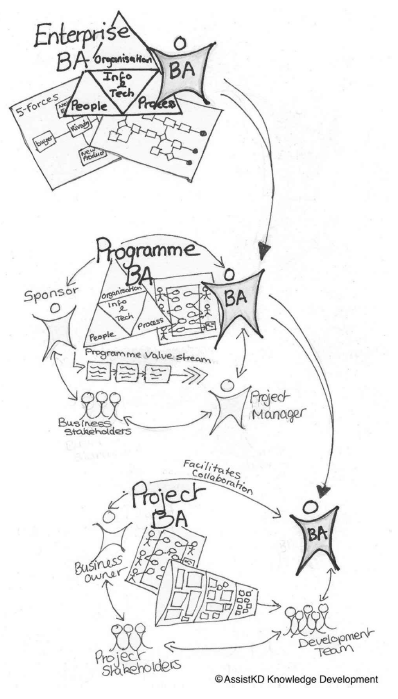 Enterprise
BA
Organisation
BA
Info
&
Tech
People
Process
5-Forces
Buyer
Rivalry
New
Product
Programme
BA
BA
Sponsor
Organisation
Info
&
Tech
People
Process
Programme Value stream
Business
Stakeholders
Project
Manager
Facilitates
Collaboration
Project
BA
BA
Business
Owner
Project
Stakeholders
Development
Team
© AssistKD Knowledge Development